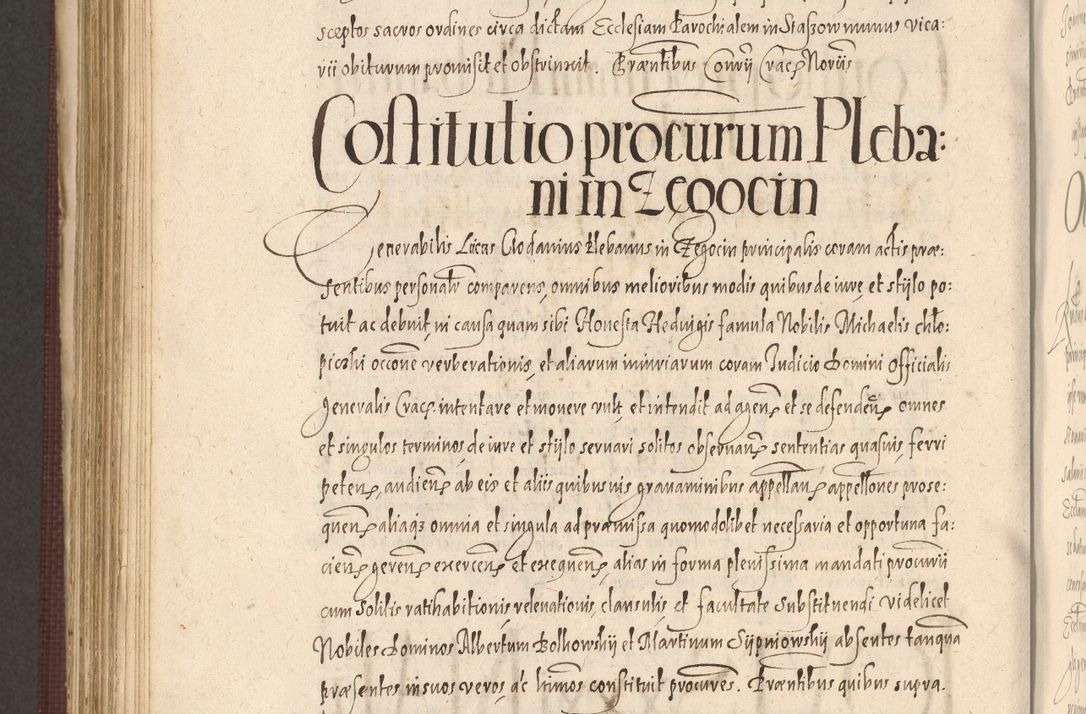 sceptos sacros ordines circa dictam Ecclesiam Parochialem in Staszow munus vica:
rii obiturum promisit et obstrinxit. Præntibus Conrÿ Crac Noriis
Costitutio procurum Pleba:
ni in Zegocin
Venerabilis Lucas Clodavius Plebanus in Zegocin principalis coram actis præ:
sentibus personalr comparens, omnibus melioribus modis quibus de iure, et stÿlo po:
tuit ac debuit, in causa quam sibi Honesta Hedvigis famula Nobilis Michaelis chło:
piczki occone verberationis, et aliarum iniuriarum coram Iudicio Domini Officialis
Generalis Crac intentare et movere vult, et intendit ad agen et se defenden omnes
et singulos terminos, de iure et stÿlo servari solitos observan sententias quasuis, ferri
peten, audien ab eis et aliis quibusuis gravaminibus appellan appellones prose:
quen aliaqz omnia et singula ad præmissa quomodolibet necessaria et opportuna fa:
cien geren exercen et exequen, alias in forma plenissima mandati procurii
cum solitis ratihabitionis, relevationis, clausulis et facultate substituendi videlicet
Nobiles Dominos Albertum Bolkowskÿ et Martinum Sÿpniowskÿ absentes tanqua
præsentes in suos veros, ac ltimos constituit procures. Præntibus quibus supra.